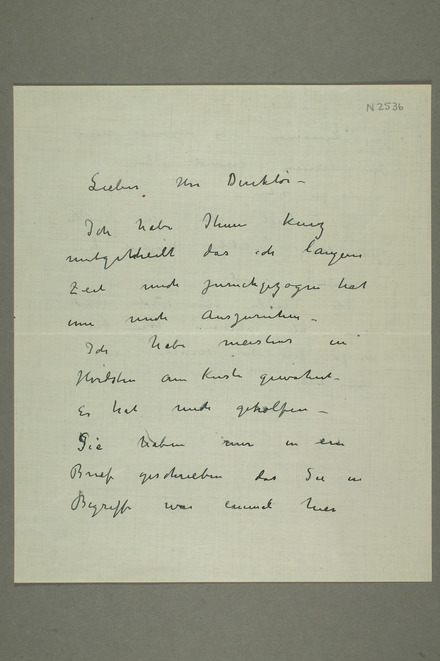 N 2536
Lieber Herr Direktör –
Ich habe Ihnen kurz
mitgetheilt das ich langere
Zeit mich zurückgezogen hat
um mich auszuruhen –
Ich habe meistens in
am Küste gewohnt –
Es hat mich geholfen –
Sie haben mir in ein
Brief geschrieben das Sie in
Begriff war einmal hier